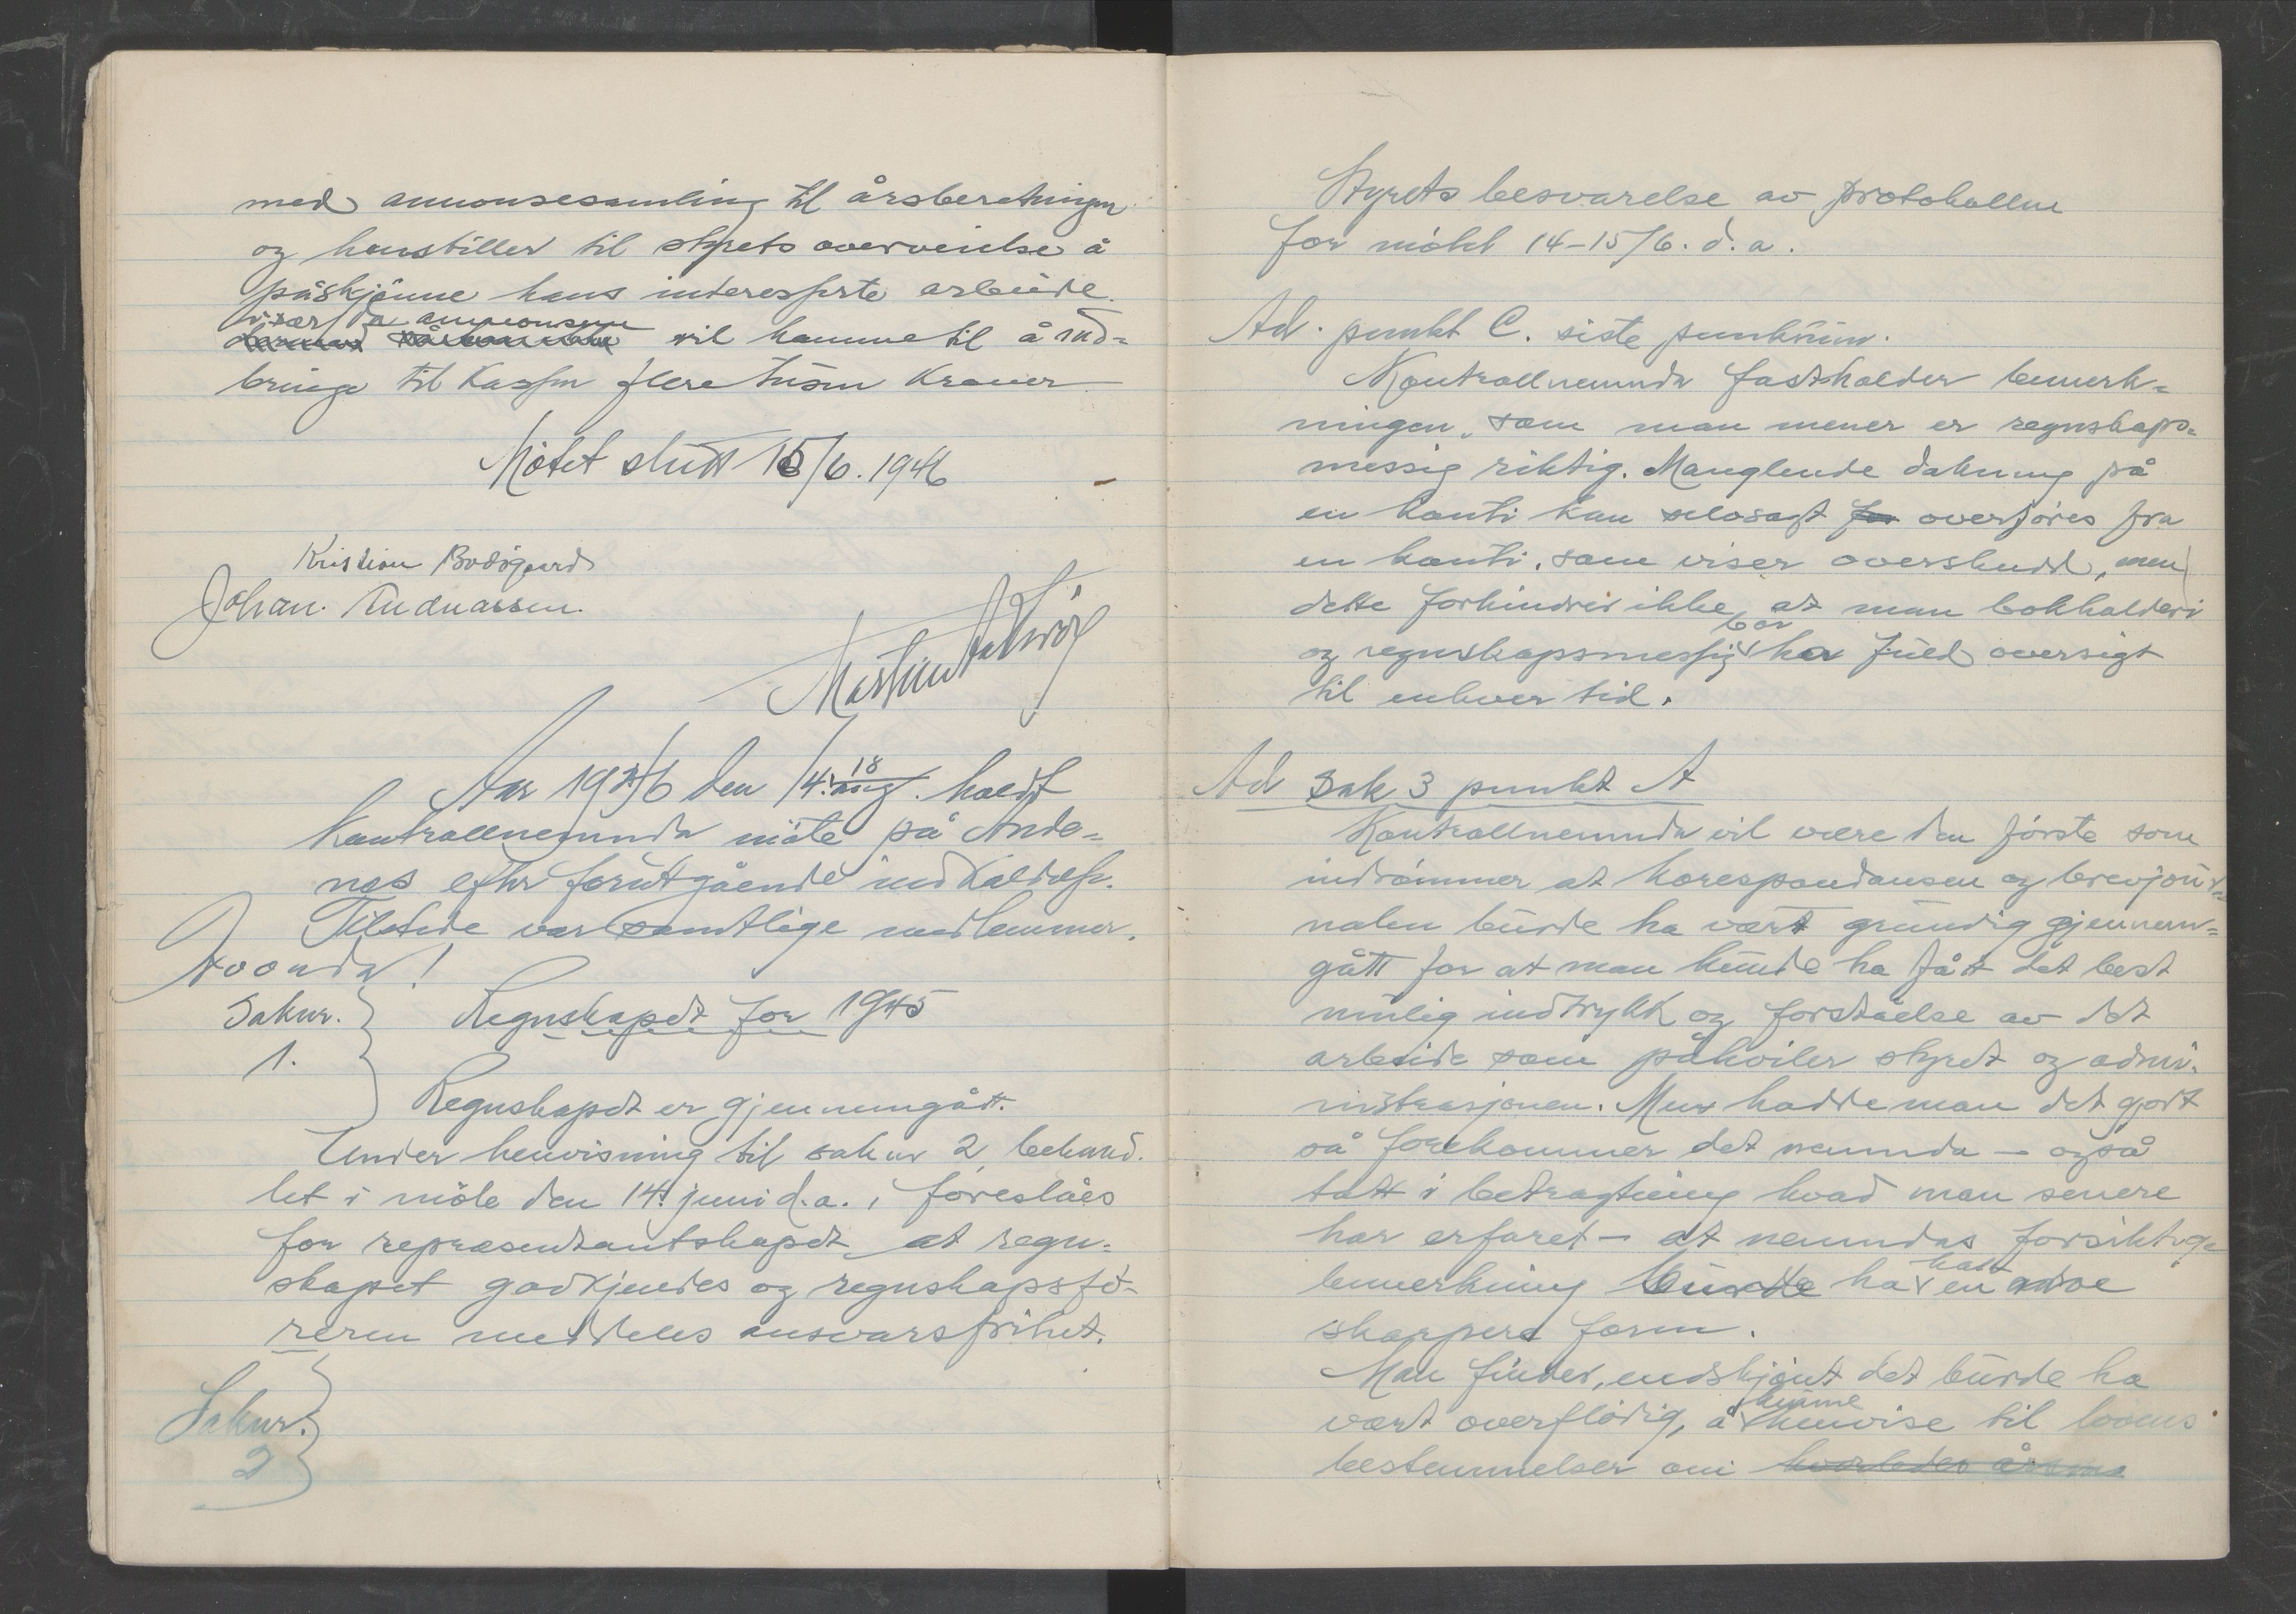 med annonsesamling til årsberetningen
og henstiller til styrets overveielse å
påskjønne hans interesserte arbeide.
især da annonsene
vil komme til å ind-
bringe til Kassen flere tusen Kroner.
Møtet slutt 15/6. 1946
Kristian Bodøgaard
Johan. Knudnassen.
Martin
Aar 1946 den 14. 18 aug. holdt
Kontrollnemnda møte på Ande-
nes efter forutgående indkaldelse.
Tilstede var samtlige medlemmer.
Saknr. Regnskapet for 1945
1.
Regnskapet er gjennemgått.
Under henvisning til saknr 2, behand-
let i møte den 14. juni d.a., foreslåes
for representantskapet at regn-
skapet godkjendes og regnskapsfø-
reren meddeles ansvarsfrihet.
Saknr.
2
Styrets besvarelse av protokollen
for møtet 14-15/6. d.a.
Ad. punkt C. siste punktum.
Kontrollnemnda fastholder bemerk-
ningen, som man mener er regnskaps-
messig riktig. Manglende dekning på
en konti kan selvsagt for overføres fra
en konti, som viser overskudd, men
dette forhindrer ikke at man bokholderi
bør
og regnskapsmessig ha fuld oversigt
til enhver tid.
Ad Sak 3 punkt A
Kontrollnemnda vil være den første som
indrømmer at korespondansen og brevjour-
nalen burde ha vært grundig gjennem-
gått for at man kunde ha fått det best
mulig indtrykk og forståelse av det
arbeide som påhviler styret og admi-
nistrasjonen. Men hadde man det gjort
så forekommer det nemnda - også
tatt i betragtning hvad man senere
har erfaret - at nemndas forsiktige
hatt
bemerkning burde ha en
skarpere form.
Man finder, endskjønt det burde ha
kunne
vært overflødig, å henvise til lovens
bestemmelser om hvorledes årsmø